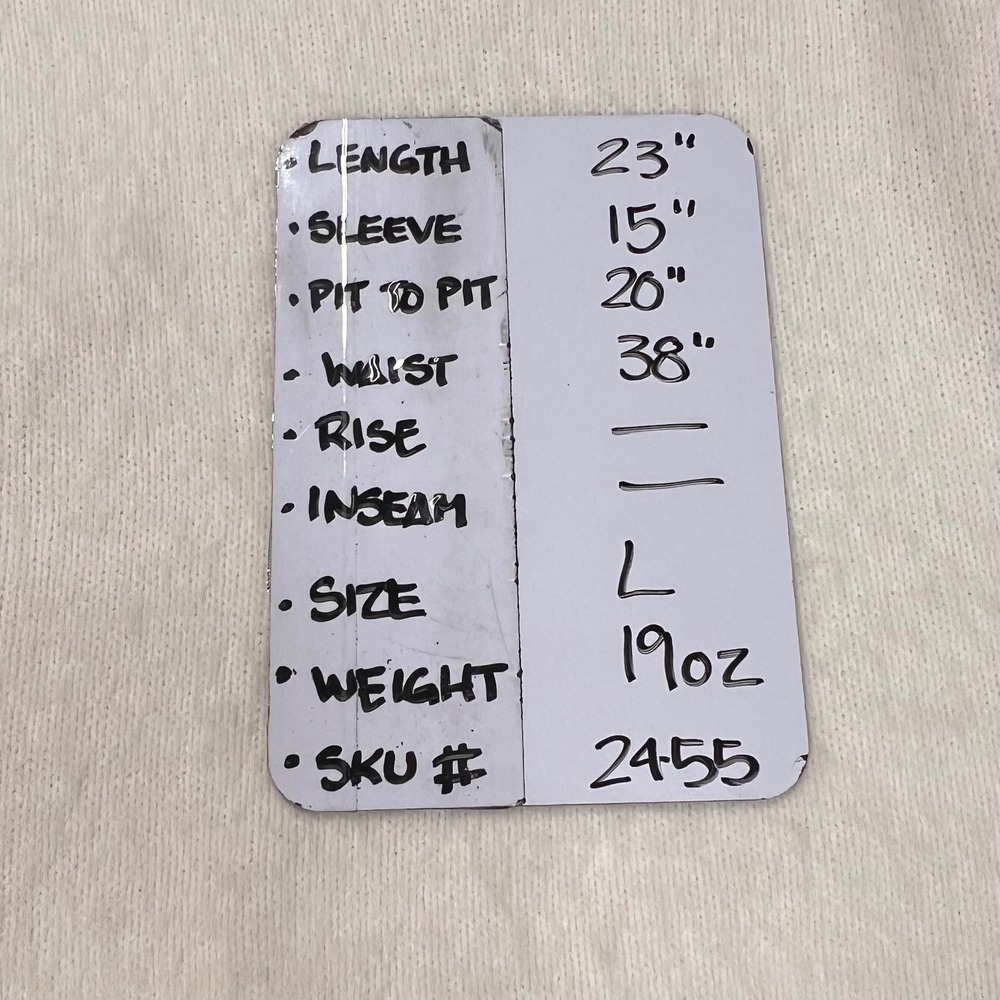 • LENGTH 23"
• SLEEVE 15"
• PIT TO PIT 20"
• WAIST 38"
• RISE —
• INSEAM —
• SIZE L
• WEIGHT 19oz
• SKU # 24-55